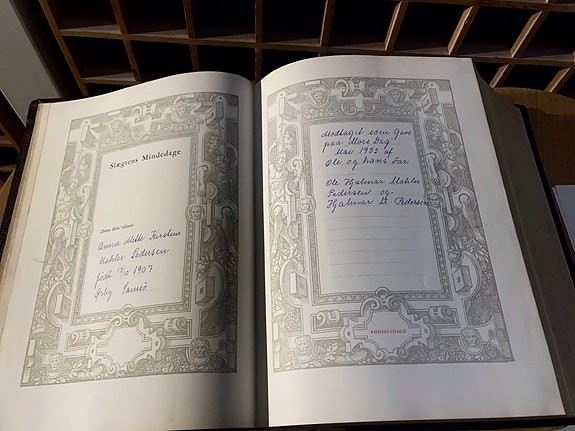 Slægtens Mindedage
Denne Bibel tilhører
Anna Mette Kirstine
Mahler Pedersen
født 7/10 1907
Ørby Samsø.
Modtaget som Gave
paa "Mors Dag"
Mai 1953 af
Ole og hans Far.
Ole Hjalmar Mahler
Pedersen og-
Hjalmar M. Pedersen
FØDSELSDAGE